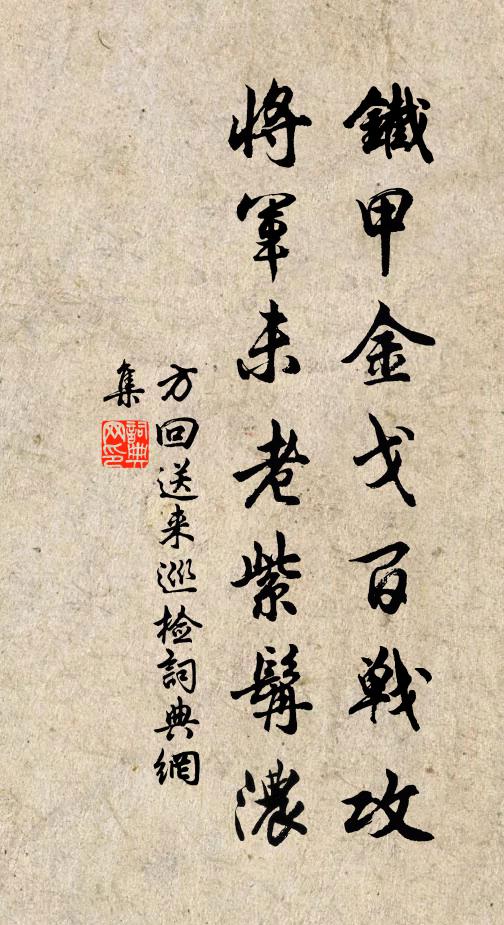 鐵甲金戈百戰攻
將軍未老紫髯濃
方回送来巡檢詞典網
集
詞典
网印